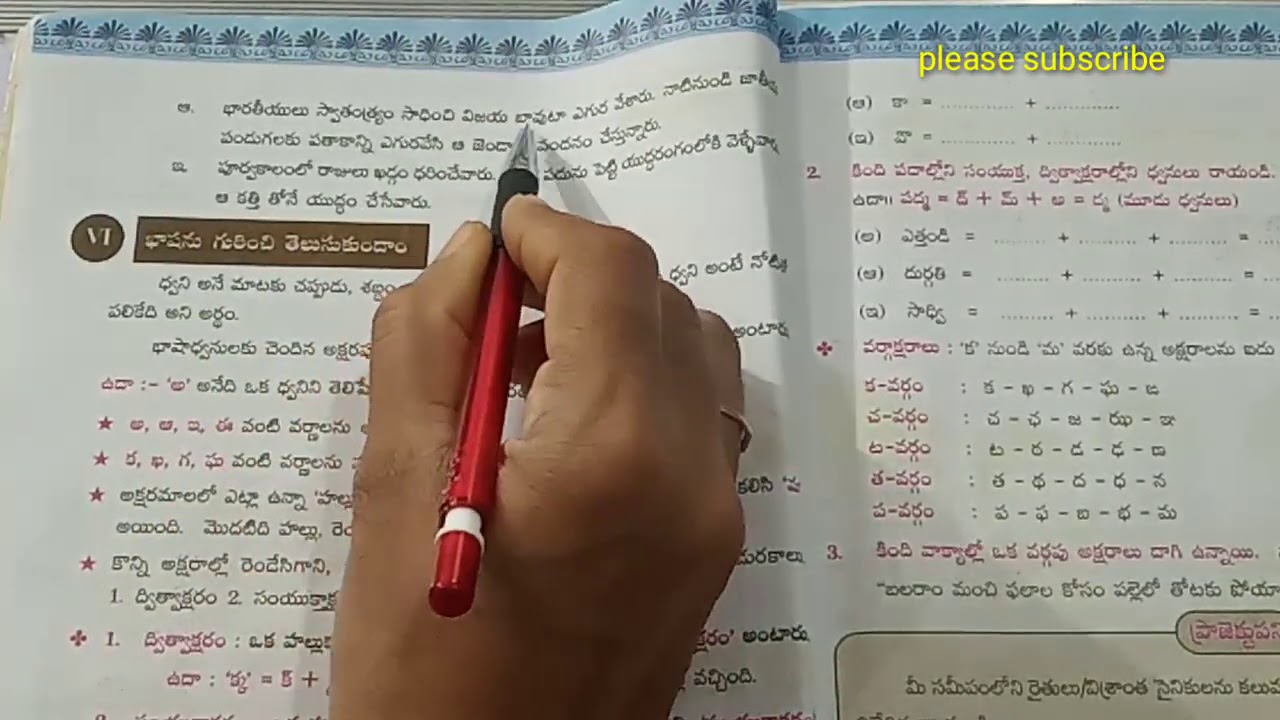 please subscribe
ఆ. భారతీయులు స్వాతంత్ర్యం సాధించి విజయ బావుటా ఎగుర వేశారు. నాటినుండి జాతీయ
పండుగలకు పతాకాన్ని ఎగురవేసి ఆ వందనం చేస్తున్నారు.
ఇ. పూర్వకాలంలో రాజులు ఖడ్గం ధరించేవారు. పదును పెట్టి యుద్ధరంగంలోకి వెళ్ళేవారు
ఆ కత్తి తోనే యుద్ధం చేసేవారు.
VI భాషను గురించి తెలుసుకుందాం
ధ్వని అనే మాటకు చప్పుడు, ధ్వని అంటే
పలికేది అని అర్థం.
భాషాధ్వనులకు చెందిన
ఉదా :- 'అ' అనేది ఒక ధ్వనిని
★ అ, ఆ, ఇ, ఈ వంటి వర్ణాలను
★ క, ఖ, గ, ఘ వంటి వర్ణాలను
★ అక్షరమాలలో ఎట్లా ఉన్నా కలిసి
అయింది. మొదటిది హల్లు,
★ కొన్ని అక్షరాల్లో రెండేసిగాని,
1. ద్విత్వాక్షరం 2.
1. ద్విత్వాక్షరం : ఒక అంటారు.
ఉదా : 'క్క' = క్ + వచ్చింది.
(ఆ) కా = ............ + ............
(ఇ) = ............ + ............
2. కింది పదాల్లోని సంయుక్త, ద్విత్వాక్షరాల్లోని ధ్వనులు రాయండి.
ఉదా॥ పద్మ = ద్ + మ్ + అ = ద్మ (మూడు ధ్వనులు)
(అ) ఎత్తండి = ......... + .......... + .......... =
(ఆ) దుర్గతి = ......... + .......... + .......... =
(ఇ) సాధ్వి = ......... + .......... + .......... =
వర్గాక్షరాలు : 'క' నుండి 'మ' వరకు ఉన్న అక్షరాలను ఐదు
క-వర్గం : క – ఖ – గ – ఘ – ఙ
చ-వర్గం : చ – ఛ – జ – ఝ – ఞ
ట-వర్గం : ట – ఠ – డ – ఢ – ణ
త-వర్గం : త – థ – ద – ధ – న
ప-వర్గం : ప – ఫ – బ – భ – మ
3. కింది వాక్యాల్లో ఒక వర్గపు అక్షరాలు దాగి ఉన్నాయి.
"బలరాం మంచి ఫలాల కోసం పల్లెలో తోటకు
మీ సమీపంలోని రైతులు/విశ్రాంత సైనికులను